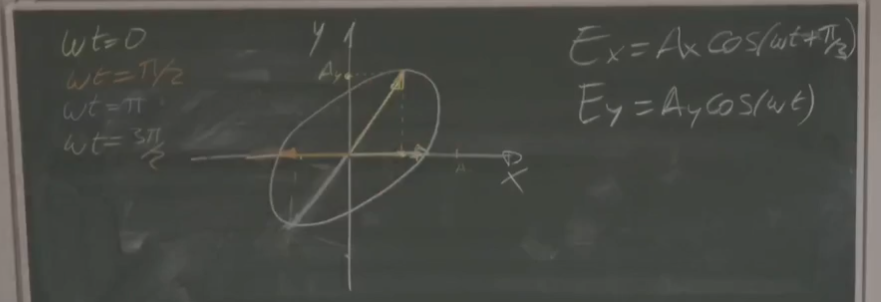 ωt=0
ωt=π/2
ωt=π
ωt=3π/2
y
Ay
x
Ex=Ax cos(ωt+π/3)
Ey=Ay cos(ωt)